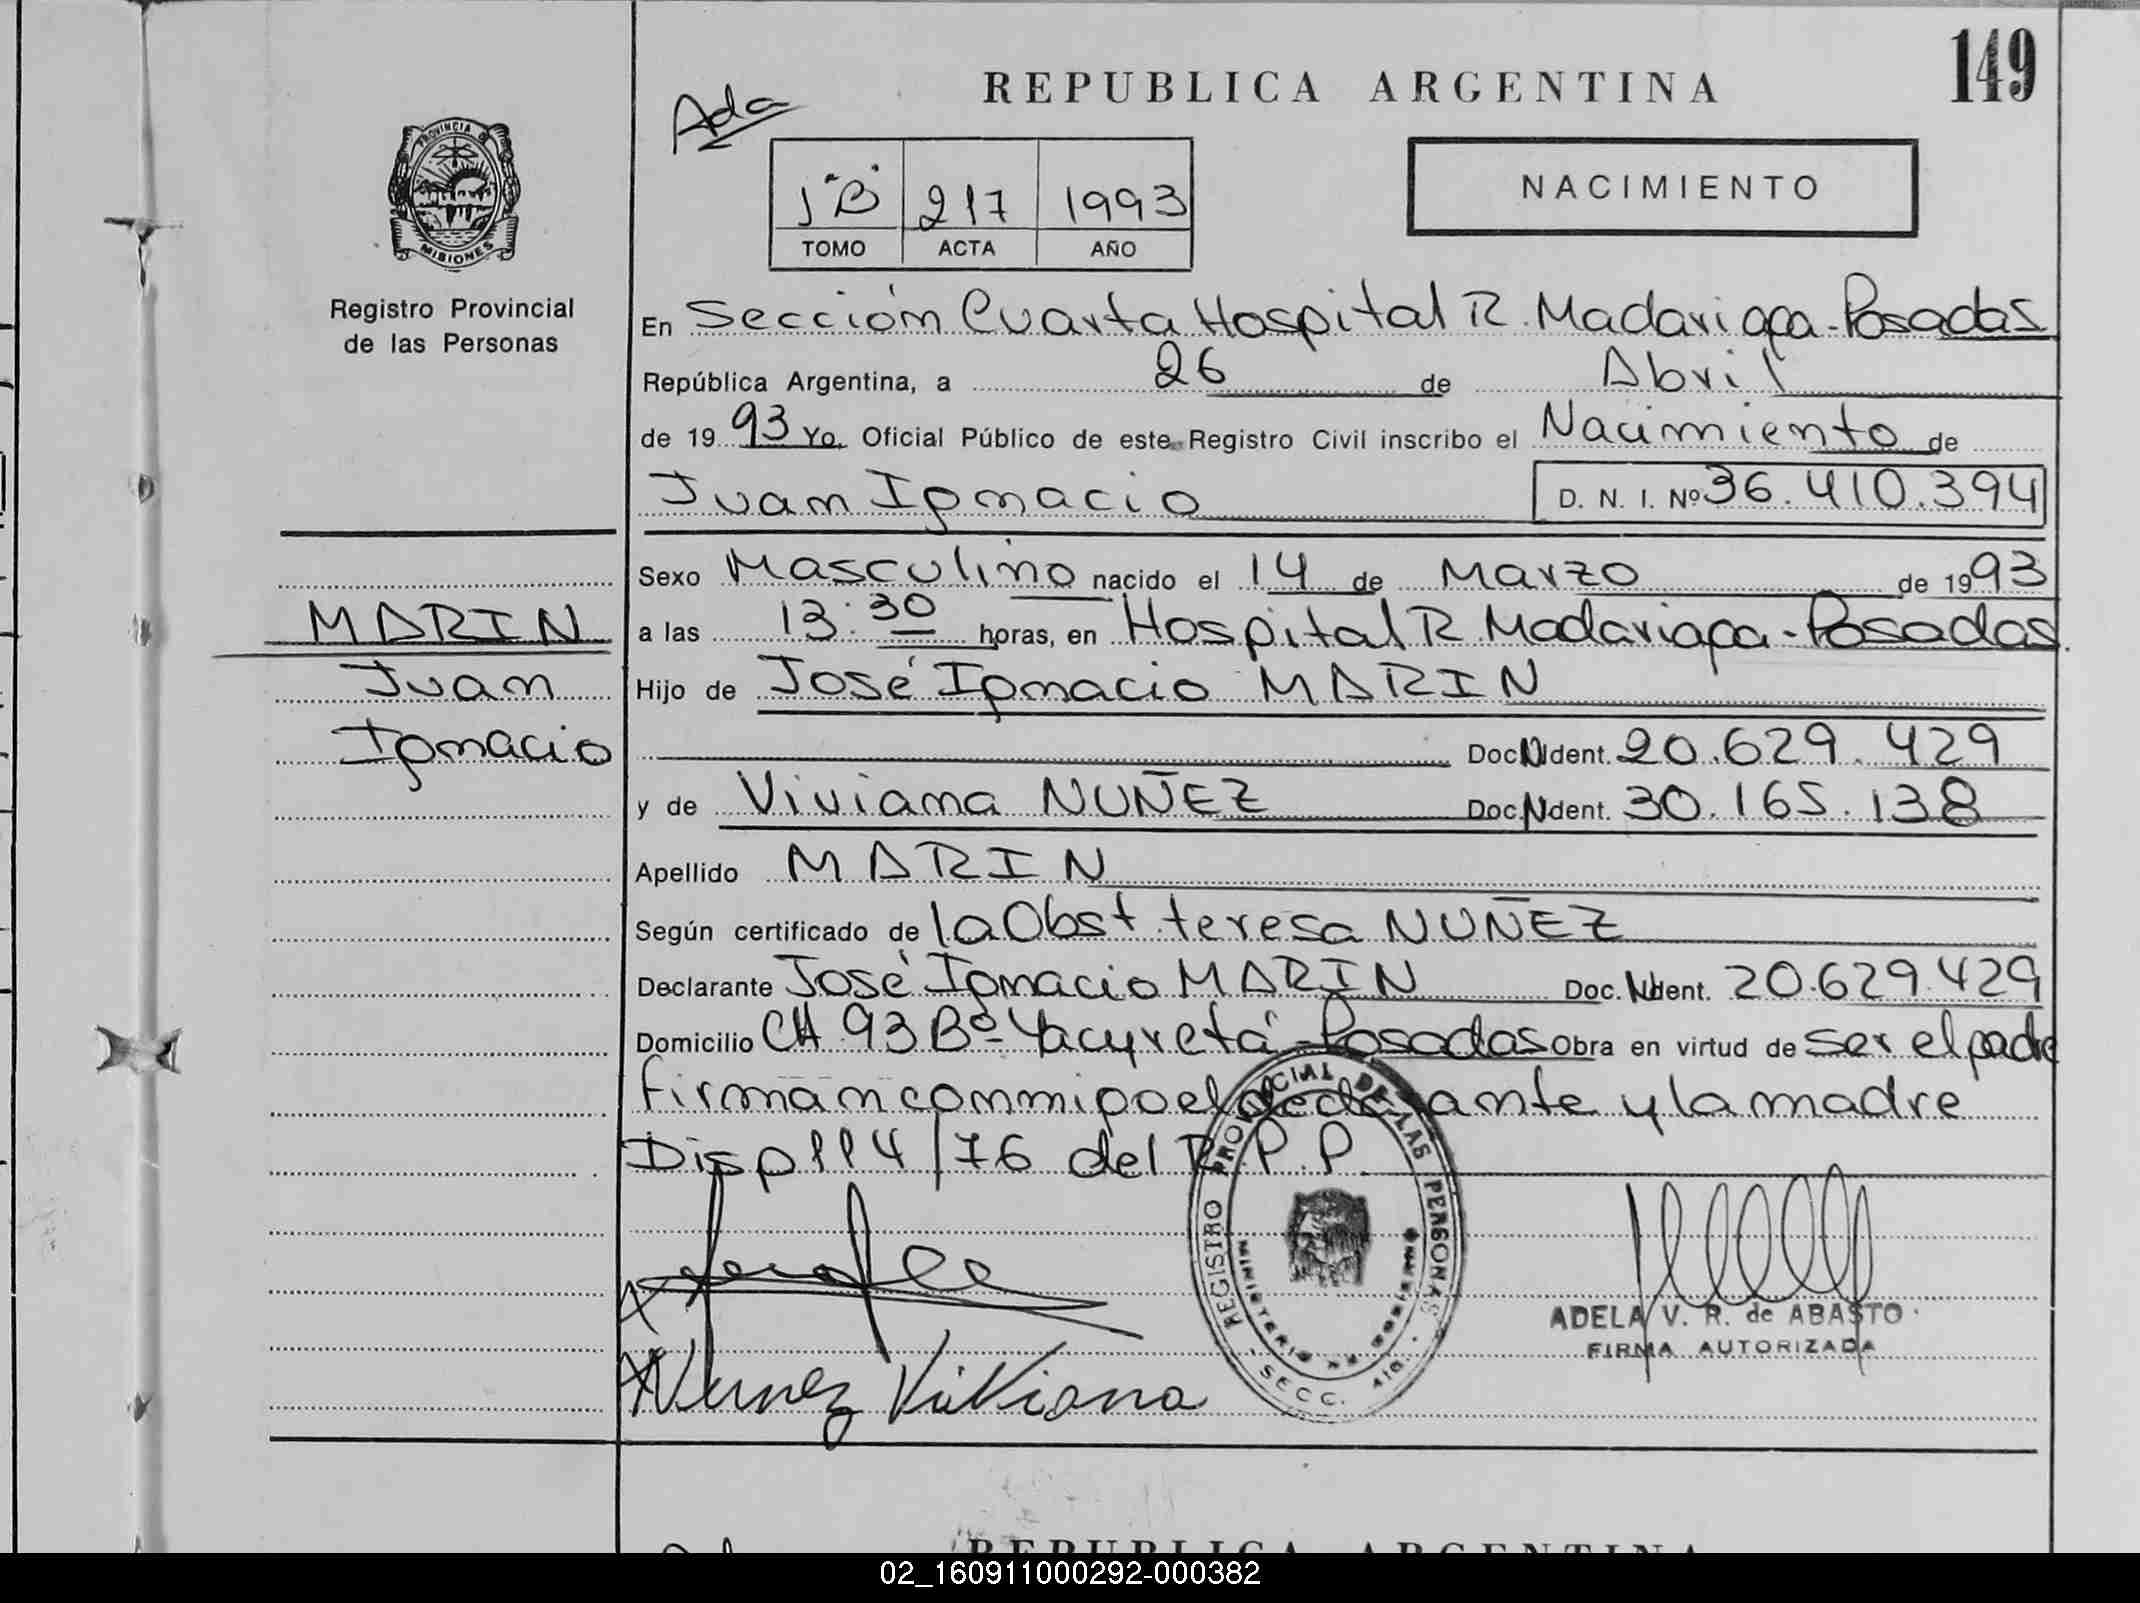 149
REPUBLICA ARGENTINA
Ada
1 "B" 217 1993
TOMO ACTA AÑO
NACIMIENTO
PROVINCIA DE
MISIONES
Registro Provincial
de las Personas
En Sección Cuarta Hospital R. Madariaga - Posadas
República Argentina, a 26 de Abril
de 19 93 Yo, Oficial Público de este Registro Civil inscribo el Nacimiento de
Juan Ignacio D. N. I. Nº 36.410.394
Sexo Masculino nacido el 14 de Marzo de 19 93
a las 13:30 horas, en Hospital R. Madariaga - Posadas
Hijo de José Ignacio MARIN
Doc. N Ident. 20.629.429
y de Viviana NUÑEZ Doc. N Ident. 30.165.138
Apellido MARIN
Según certificado de la Obst teresa NUÑEZ
Declarante José Ignacio MARIN Doc. N Ident. 20.629.429
Domicilio CH 93 Bº Yacyretá - Posadas Obra en virtud de ser el padre
firman conmigo el declarante y la madre
Disp 114/76 del R.P.P.
MARIN
Juan
Ignacio
REGISTRO PROVINCIAL DE LAS PERSONAS
MINISTERIO DE GOBIERNO
SECC. 4ta.
ADELA V. R. de ABASTO
FIRMA AUTORIZADA
Nunez Viviana
REPUBLICA ARGENTINA
02_160911000292-000382